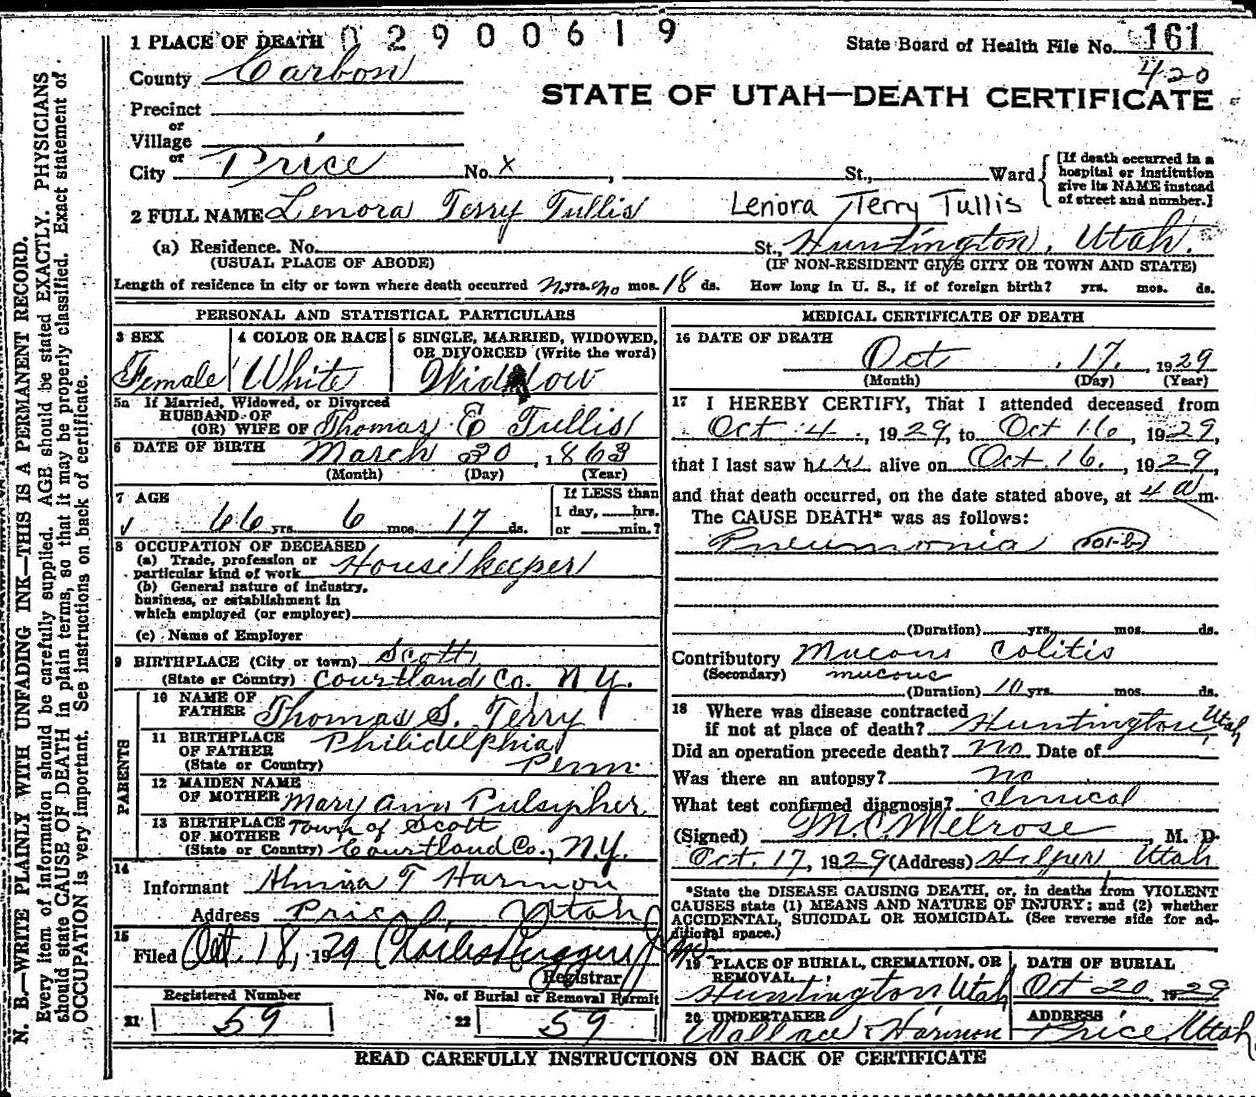 02900619
1 PLACE OF DEATH
State Board of Health File No. 161
420
County Carbon
STATE OF UTAH—DEATH CERTIFICATE
Precinct
or
Village
or
City Price No. x , St., Ward
[If death occurred in a
hospital or institution
give its NAME instead
of street and number.]
2 FULL NAME Lenora Terry Tullis Lenora Terry Tullis
(a) Residence. No. St., Huntington, Utah.
(USUAL PLACE OF ABODE) (IF NON-RESIDENT GIVE CITY OR TOWN AND STATE)
Length of residence in city or town where death occurred yrs. no mos. 18 ds. How long in U. S., if of foreign birth? yrs. mos. ds.
PERSONAL AND STATISTICAL PARTICULARS
3 SEX 4 COLOR OR RACE 5 SINGLE, MARRIED, WIDOWED,
OR DIVORCED (Write the word)
Female White Widow
5a If Married, Widowed, or Divorced
HUSBAND OF
(OR) WIFE OF Thomas E Tullis
6 DATE OF BIRTH March 30, 1863
(Month) (Day) (Year)
7 AGE If LESS than
1 day, hrs.
66 yrs. 6 mos. 17 ds. or min.?
8 OCCUPATION OF DECEASED
(a) Trade, profession or
particular kind of work Housekeeper
(b) General nature of industry,
business, or establishment in
which employed (or employer)
(c) Name of Employer
9 BIRTHPLACE (City or town) Scott
(State or Country) Courtland Co. N.Y.
PARENTS
10 NAME OF
FATHER Thomas S. Terry
11 BIRTHPLACE
OF FATHER Philidelphia
(State or Country) Penn.
12 MAIDEN NAME
OF MOTHER Mary Ann Pulsypher
13 BIRTHPLACE
OF MOTHER Town of Scott
(State or Country) Courtland Co., N.Y.
14
Informant Almira T Harmon
Address Price, Utah
15
Filed Oct. 18, 1929
Registrar
Registered Number No. of Burial or Removal Permit
21 59 22 59
MEDICAL CERTIFICATE OF DEATH
16 DATE OF DEATH
Oct 17, 1929
(Month) (Day) (Year)
17 I HEREBY CERTIFY, That I attended deceased from
Oct 4, 1929, to Oct 16, 1929,
that I last saw her alive on Oct. 16, 1929,
and that death occurred, on the date stated above, at 4 a m.
The CAUSE DEATH* was as follows:
Pneumonia 101-b
(Duration) yrs. mos. ds.
Contributory Mucous Colitis
(Secondary) mucous
(Duration) 10 yrs. mos. ds.
18 Where was disease contracted
if not at place of death? Huntington, Utah
Did an operation precede death? no Date of
Was there an autopsy? no
What test confirmed diagnosis? Clinical
(Signed) M.C. Melrose M. D.
Oct. 17, 1929 (Address) Helper Utah
*State the DISEASE CAUSING DEATH, or, in deaths from VIOLENT
CAUSES state (1) MEANS AND NATURE OF INJURY; and (2) whether
ACCIDENTAL, SUICIDAL OR HOMICIDAL. (See reverse side for ad-
ditional space.)
19 PLACE OF BURIAL, CREMATION, OR
REMOVAL
Huntington Utah
DATE OF BURIAL
Oct 20 1929
20 UNDERTAKER
Wallace & Harmon
ADDRESS
Price, Utah
READ CAREFULLY INSTRUCTIONS ON BACK OF CERTIFICATE
N. B.—WRITE PLAINLY WITH UNFADING INK—THIS IS A PERMANENT RECORD.
Every item of information should be carefully supplied. AGE should be stated EXACTLY. PHYSICIANS
should state CAUSE OF DEATH in plain terms, so that it may be properly classified. Exact statement of
OCCUPATION is very important. See instructions on back of certificate.